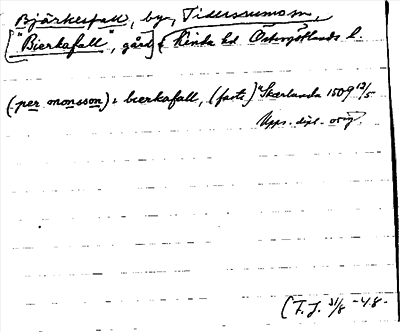 Bjärkefall, by, Tidersrums sn,
["Bierkafall", gård] Kinda hd Östergötlands l.
(per monsson) i bierkafall, (faste) Skærlanda 1509 13/5
Upps. dipl. orig.
(T. J. 31/8 -48-